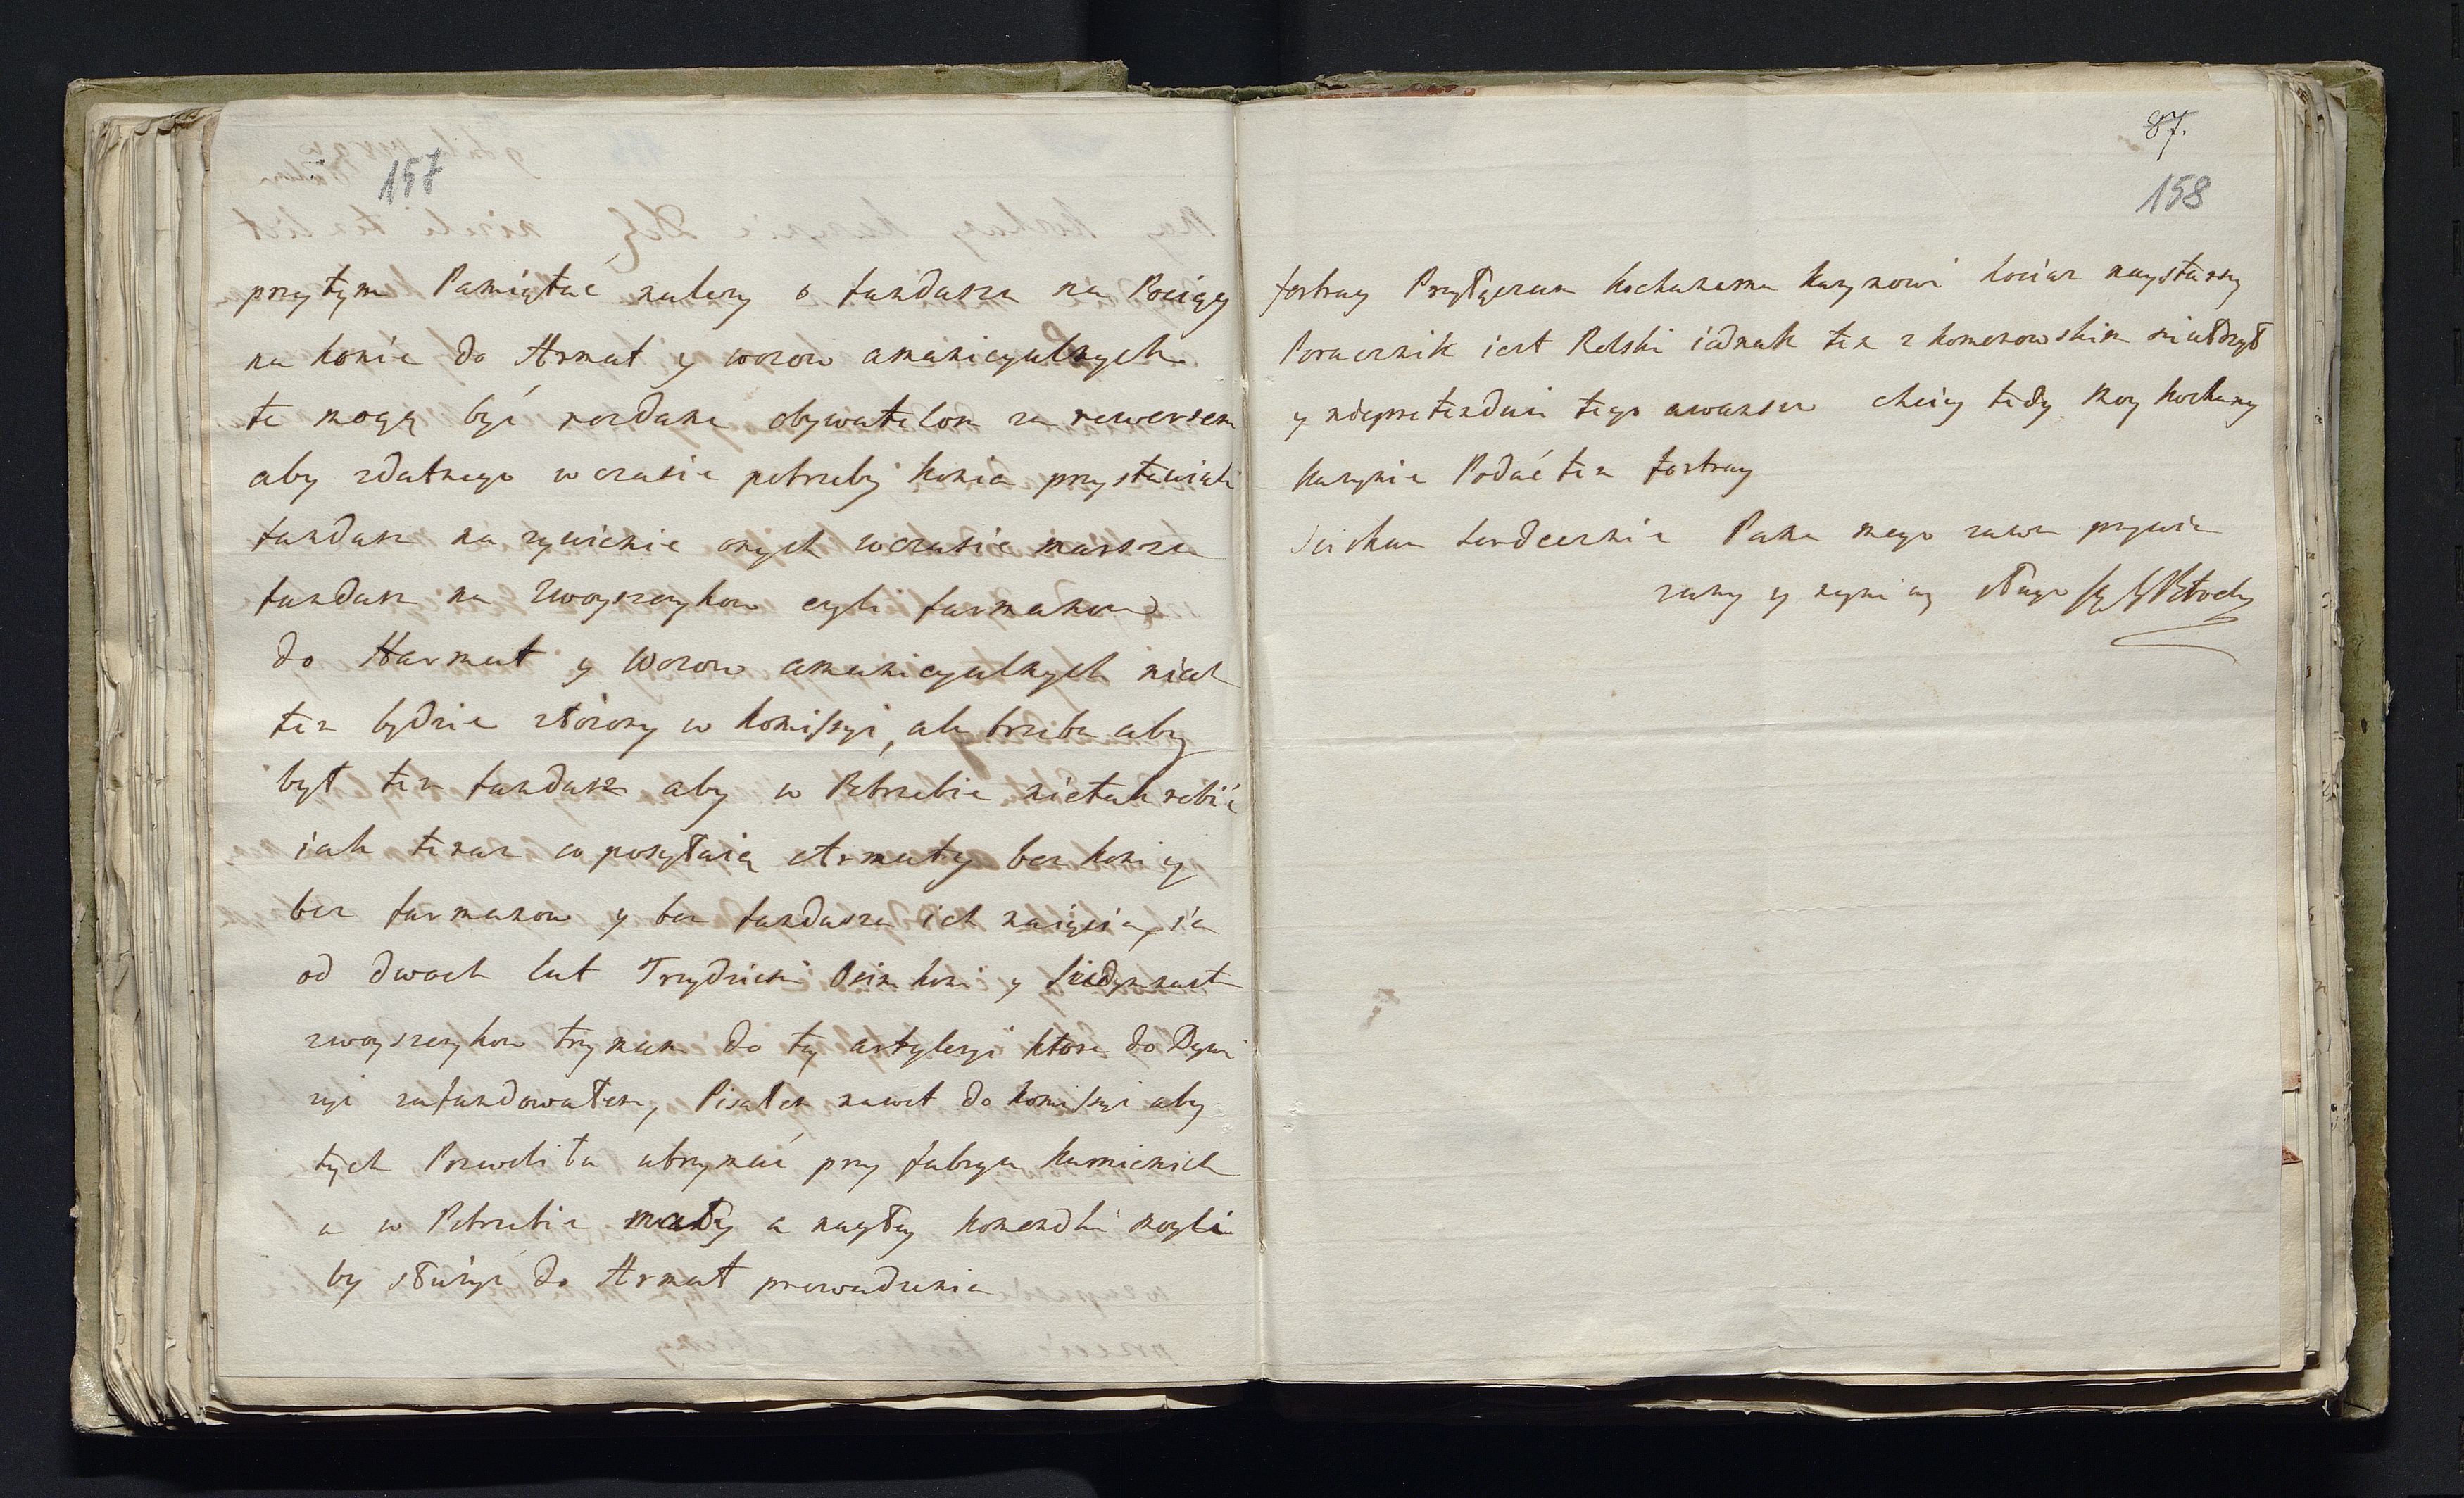 157
przytym Pamiętać nalezy o fundaszu na Pociągy
na konie do Armat y wozow amunicyialnych
te mogą być rozdane obywatelom za rewersem
aby zdatnego w czasie potrzeby konia przystawiali
fundusz na zywienie onych w czasie marszu
fundusz na Zwoyszczykow czyli furmanow
do Harmat y Wozow amunicyalnych niech
ten będzie złożony w komissyi, ale trzeba aby
był ten fundusz aby w Potrzebie nietak robić
iak teraz co posyłaią Armaty bez koni y
bez furmanow y bez funduszu ich naięcia, ia
od dwoch lat Trzydzieści Osim koni y siedymnast
zwoyszczykow trzymam do tey artyleryi ktora do Dywi
zyi zafundowałem, Pisałem nawet do komissyi aby
tych Pozwoliła utrzymać przy fabryce kamienich
a w Potrzebie małey a nagłey komendzi mogli
by służyc do Armat prowadzenia
87.
158
fortragi Przyłączam kochanemu kuzynowi kociaz naystarszy
Porucznik iest Rolski iednak ten z komorowskim siedział
y niepretenduie tego awansu chciey tedy moy kochany
kuzynie Podać ten fortrag
Sciskam serdecznie Pana mego zawsze przywią
zany y nayniszy sługa S S Potocky